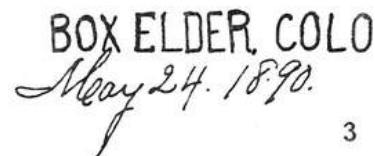 BOX ELDER, COLO
May 24. 1890.
3